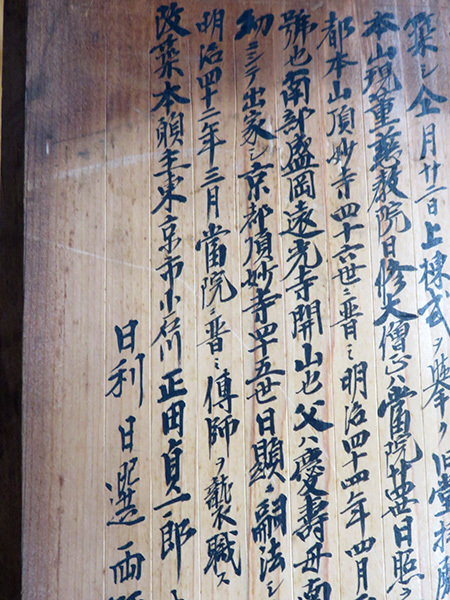 築シ仝月廿二日上棟式ヲ挙ク旧堂
本山現董慈教院日修大僧正ハ當院廿世日照
都本山頂妙寺四十六世ニ晋ミ明治四十四年四月
號也南部盛岡遠光寺開山也父ハ慶壽母南
幼ニシテ出家シ京都頂妙寺四十五世日顕ニ嗣法シ
明治四十二年三月當院ニ晋ミ傳師ヲ襲職ス
改築本願主東京市小石川正田貞一郎
日利日選両